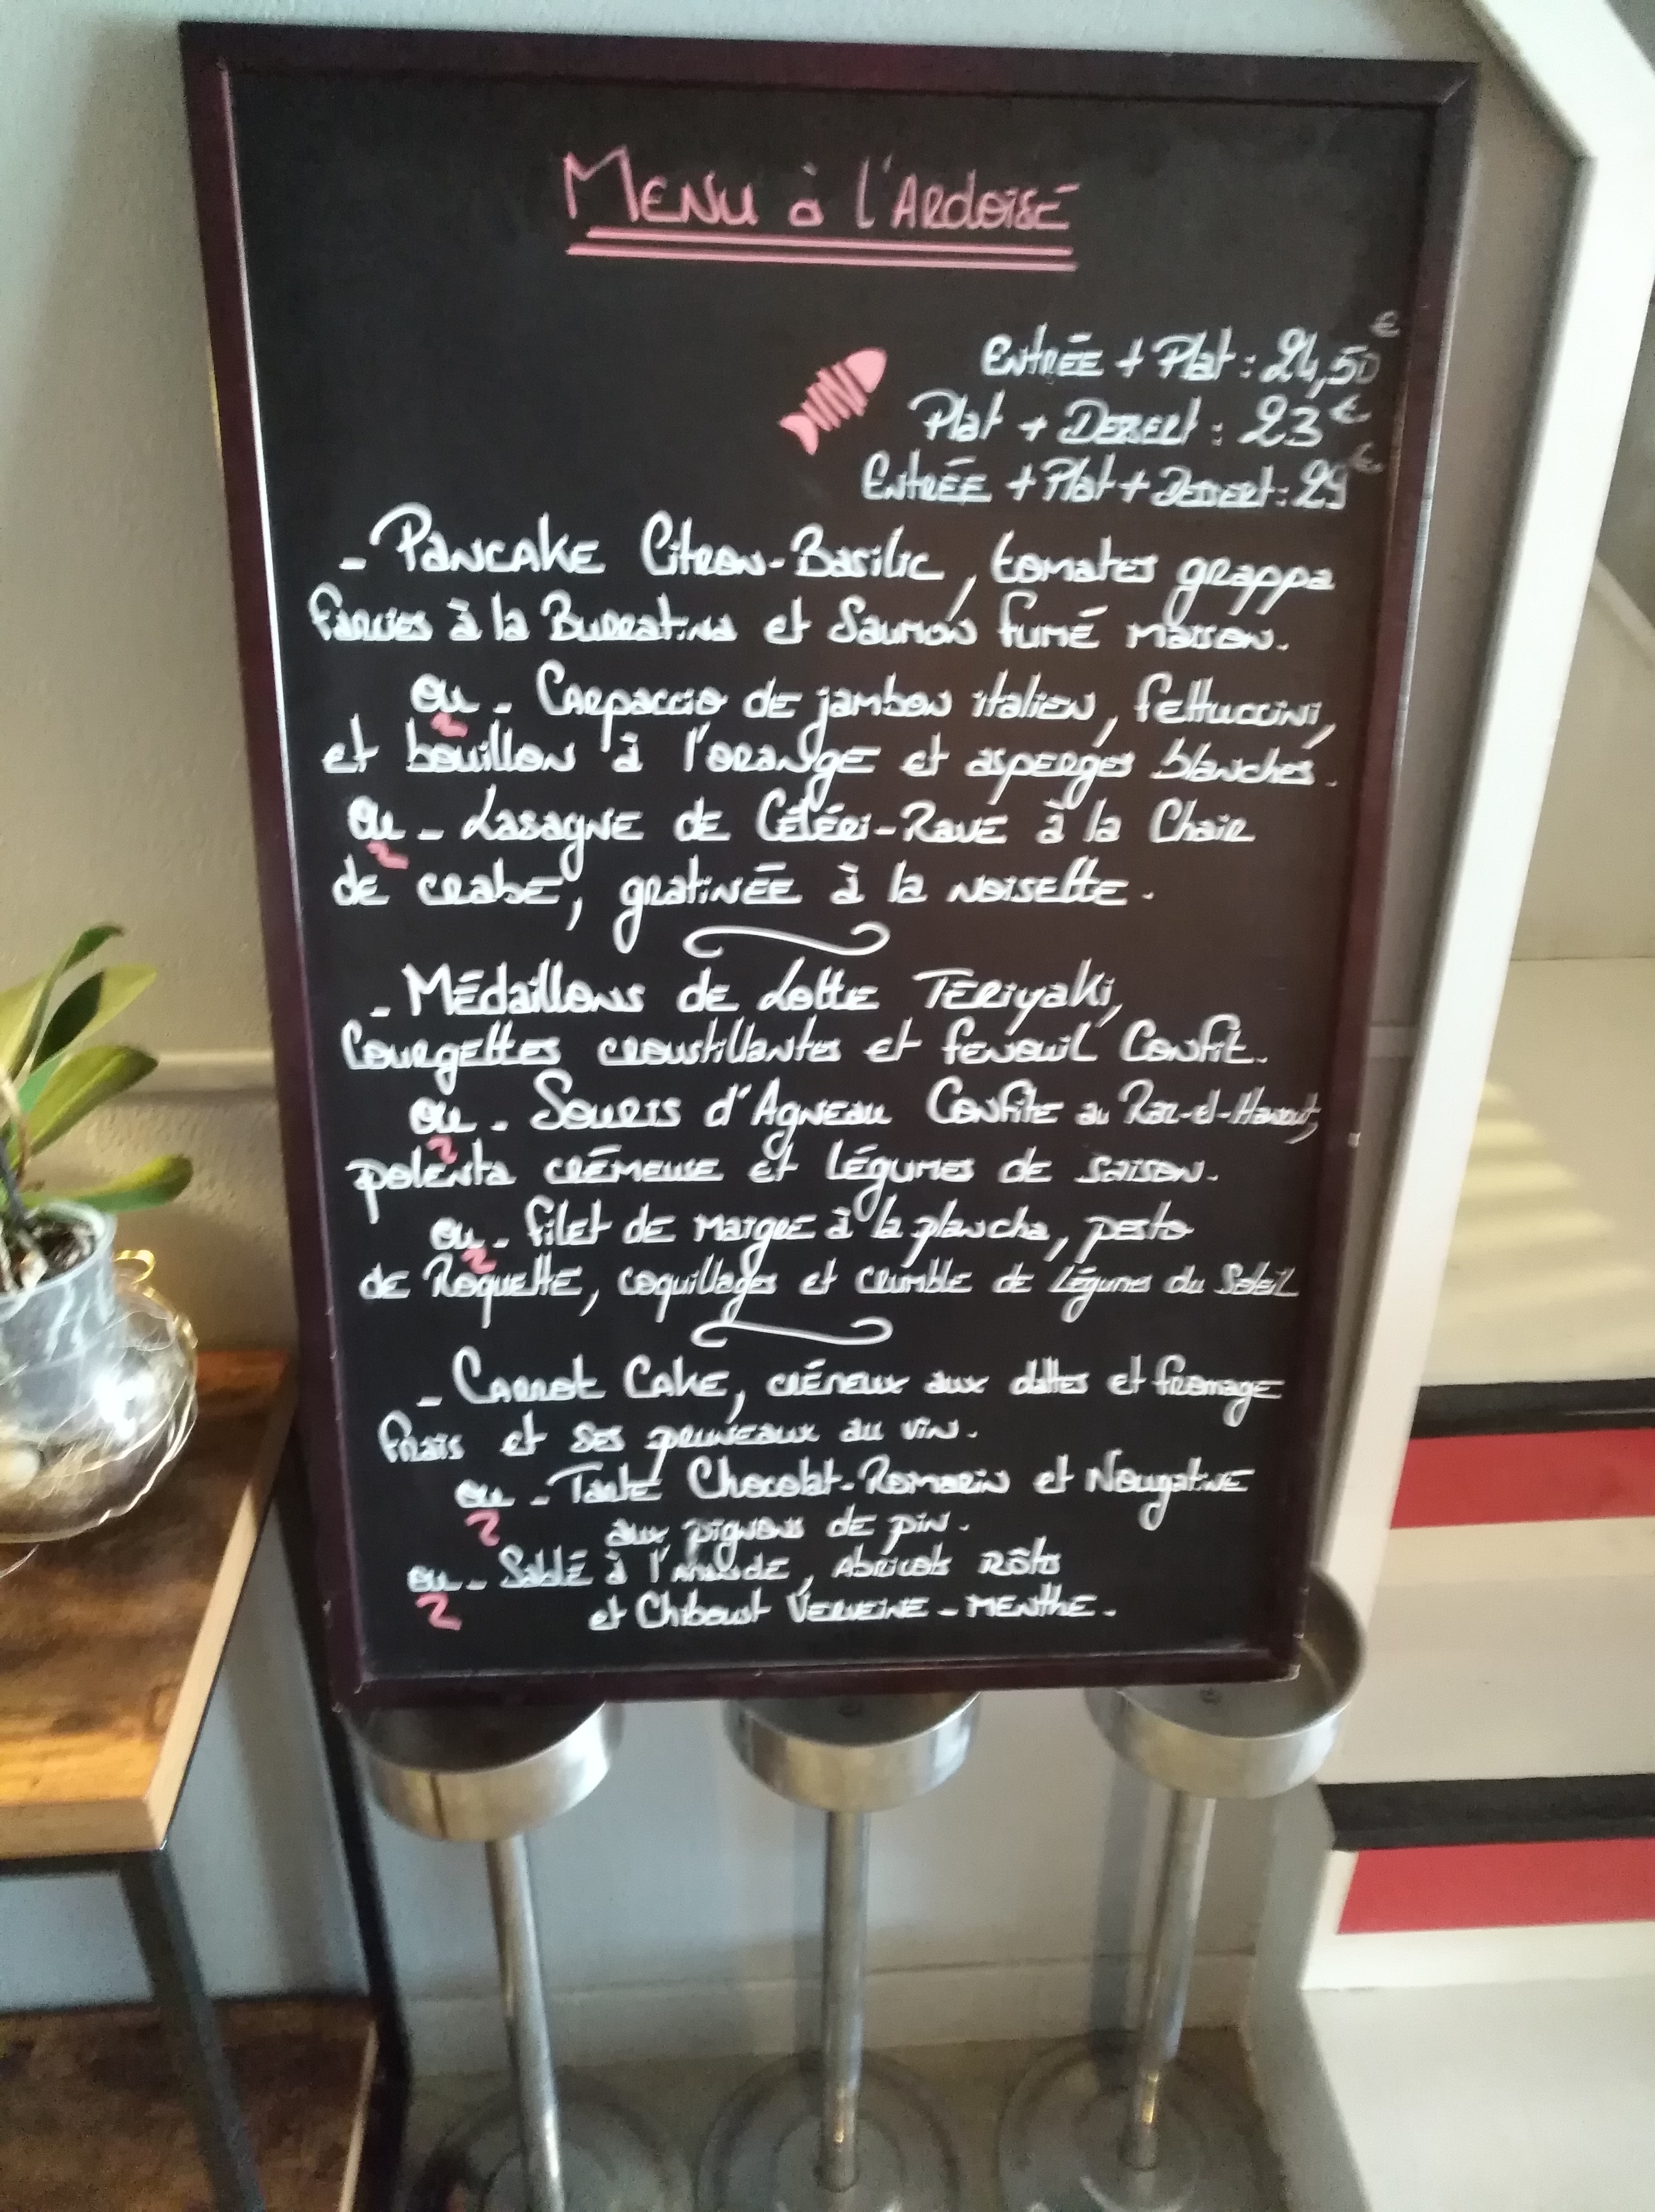 Menu à l'Ardoise
Entrée + Plat : 24,50€
Plat + Dessert : 23€
Entrée + Plat + Dessert : 29€
- Pancake Citron-Basilic, tomates grappa
farcies à la Burratina et Saumon fumé maison.
ou - Carpaccio de jambon italien, fettuccini,
et bouillon à l'orange et asperges blanches.
ou - Lasagne de Céléri-Rave à la Chair
de crabe, gratinée à la noisette.
- Médaillons de Lotte Teriyaki,
Courgettes croustillantes et fenouil Confit.
ou - Souris d'Agneau Confite au Raz-el-Hanout,
polenta crémeuse et légumes de saison.
ou - filet de maigre à la plancha, pesto
de Roquette, coquillages et crumble de Légumes du Soleil
- Carrot Cake, crémeux aux dattes et fromage
frais et ses pruneaux au vin.
ou - Tarte Chocolat-Romarin et Nougatine
aux pignons de pin.
ou - Sablé à l'Amande, Abricots rôtis
et Chiboust Verveine - menthe.